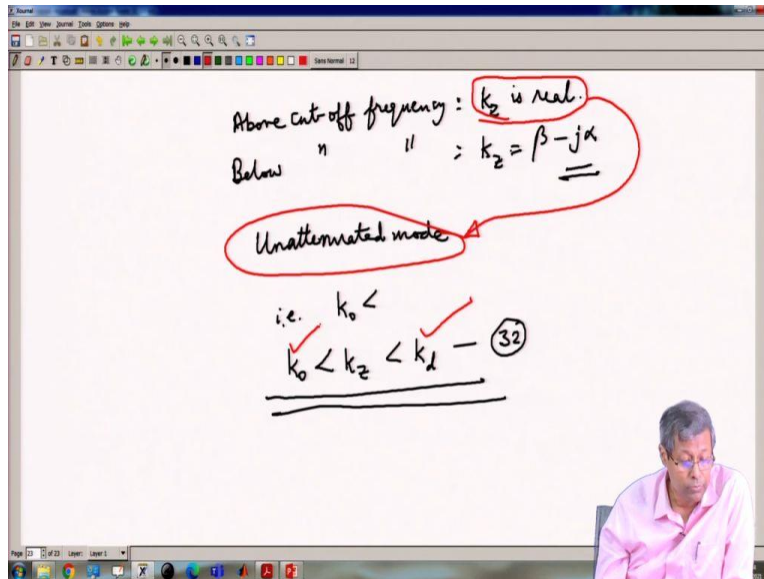 Xournal
File Edit View Journal Tools Options Help
Sans Normal 12
Above cut-off frequency : k_z is real.
Below " " : k_z = β - jα
Unattenuated mode
i.e. k_0 <
k_0 < k_z < k_d - (32)
Page 23 of 23 Layer: Layer 1